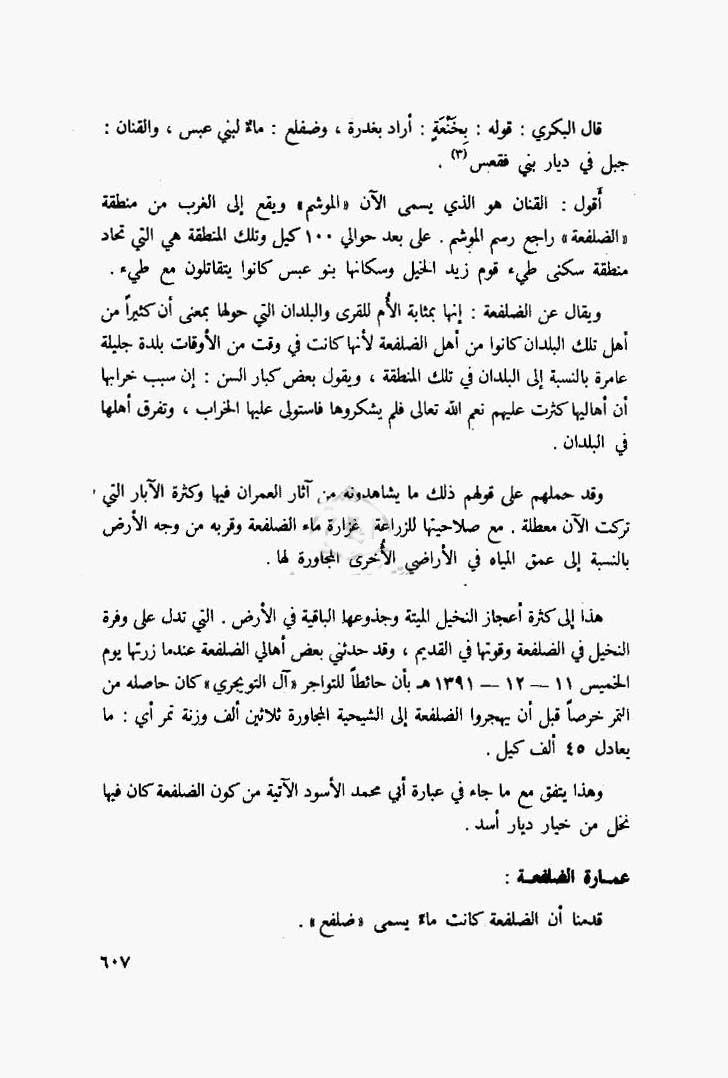 قال البكري : قوله : بِخَنْعَةٍ : أراد بغدرة ، وضفلع : ماءٌ لبني عبس ، والقنان :
جبل في ديار بني فقعس(٣) .
أَقول : القنان هو الذي يسمى الآن «الموشم» ويقع إلى الغرب من منطقة
«الضلفعة» راجع رسم الموشم . على بعد حوالي ١٠٠ كيل وتلك المنطقة هي التي تحاد
منطقة سكنى طيء قوم زيد الخيل وسكانها بنو عبس كانوا يتقاتلون مع طيء .
ويقال عن الضلفعة : إنها بمثابة الأُم للقرى والبلدان التي حولها بمعنى أن كثيراً من
أهل تلك البلدان كانوا من أهل الضلفعة لأنها كانت في وقت من الأوقات بلدة جليلة
عامرة بالنسبة إلى البلدان في تلك المنطقة ، ويقول بعض كبار السن : إن سبب خرابها
أن أهاليها كثرت عليهم نعم الله تعالى فلم يشكروها فاستولى عليها الخراب ، وتفرق أهلها
في البلدان .
وقد حملهم على قولهم ذلك ما يشاهدونه من آثار العمران فيها وكثرة الآبار التي
تركت الآن معطلة . مع صلاحيتها للزراعة غزارة ماء الضلفعة وقربه من وجه الأرض
بالنسبة إلى عمق المياه في الأراضي الأُخرى المجاورة لها .
هذا إلى كثرة أعجاز النخيل الميتة وجذوعها الباقية في الأرض . التي تدل على وفرة
النخيل في الضلفعة وقوتها في القديم ، وقد حدثني بعض أهالي الضلفعة عندما زرتها يوم
الخميس ١١ — ١٢ — ١٣٩١هـ بأن حائطاً للتواجر «آل التويجري» كان حاصله من
التمر خرصاً قبل أن يهجروا الضلفعة إلى الشيحية المجاورة ثلاثين ألف وزنة تمر أي : ما
يعادل ٤٥ ألف كيل .
وهذا يتفق مع ما جاء في عبارة أبي محمد الأسود الآتية من كون الضلفعة كان فيها
نخل من خيار ديار أسد .
عمـارة الضلفعـة :
قدمنا أن الضلفعة كانت ماءً يسمى «ضلفع» .
٦٠٧